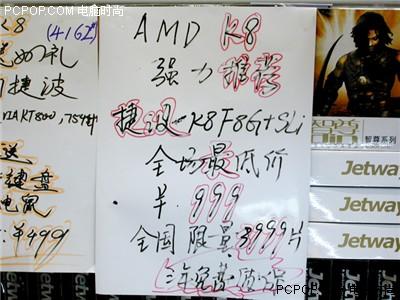 PCPOP.COM 电脑时尚
K8 (41位)
礼
捷波
KT800,754针
送
键盘
电鼠
:￥499
AMD K8
强力推荐
捷波-K8F8G+SLi
全场最低价
￥.999
全国限量3999片
三年免费
智尊系列
Jetway
Jetway
Jetway
PCPOP.COM 电脑时尚